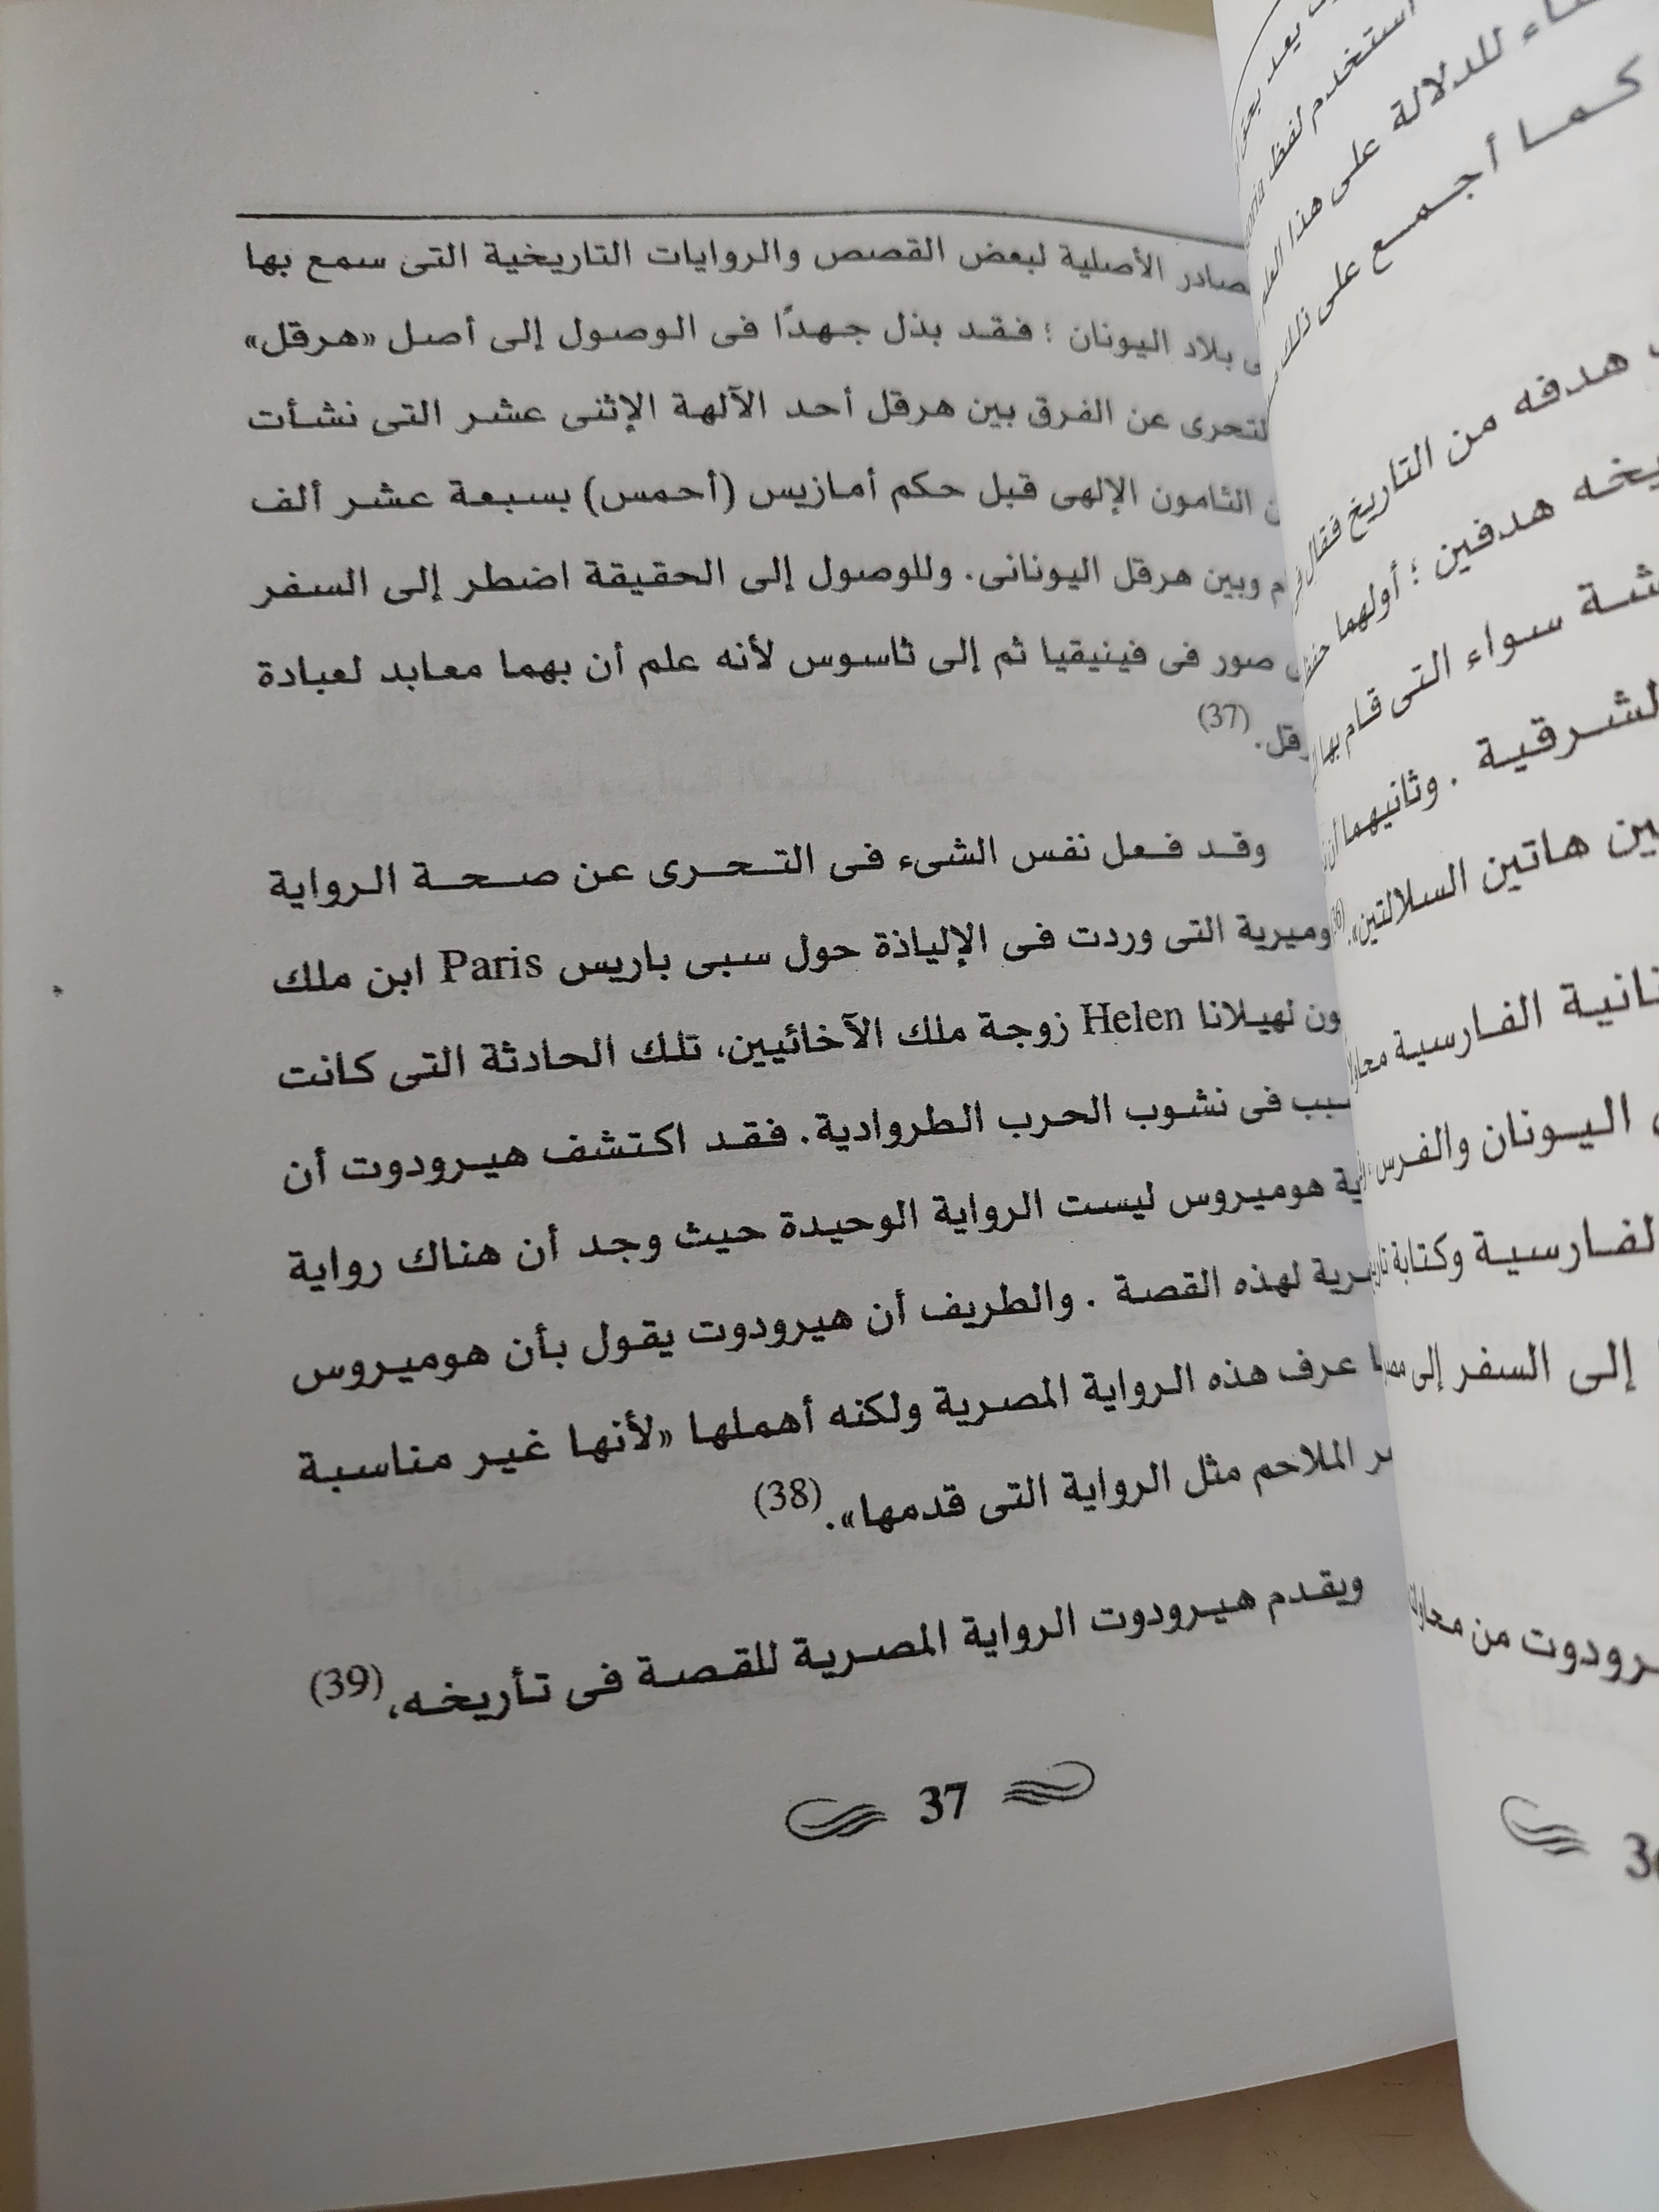 الأصلية لبعض القصص والروايات التاريخية التى سمع بها
بلاد اليونان ؛ فقد بذل جهدًا فى الوصول إلى أصل «هرقل»
عن الفرق بين هرقل أحد الآلهة الإثنى عشر التى نشأت
الثامون الإلهى قبل حكم أمازيس (أحمس) بسبعة عشر ألف
وبين هرقل اليونانى. وللوصول إلى الحقيقة اضطر إلى السفر
صور فى فينيقيا ثم إلى ثاسوس لأنه علم أن بهما معابد لعبادة
(37)
وقد فعل نفس الشىء فى التحرى عن صحة الرواية
التى وردت فى الإلياذة حول سبى باريس Paris ابن ملك
لهيلانا Helen زوجة ملك الآخائيين، تلك الحادثة التى كانت
فى نشوب الحرب الطروادية. فقد اكتشف هيرودوت أن
هوميروس ليست الرواية الوحيدة حيث وجد أن هناك رواية
لهذه القصة . والطريف أن هيرودوت يقول بأن هوميروس
عرف هذه الرواية المصرية ولكنه أهملها «لأنها غير مناسبة
الملاحم مثل الرواية التى قدمها».(38)
ويقدم هيرودوت الرواية المصرية للقصة فى تأريخه،(39)
37
استخدم لفظ
للدلالة على هذا العلم
كما أجمع على ذلك
هدفه من التاريخ فقال
هدفين ؛ أولهما
سواء التى قام بها
. وثانيهما
هاتين السلالتين».
الفارسية
اليونان والفرس
وكتابة
إلى السفر إلى
من